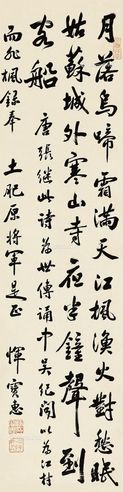 月落烏啼霜滿天江楓漁火對愁眠
姑蘇城外寒山寺夜半鐘聲到
客船 唐張繼此詩為世傳誦中吳紀聞以為江村
而非楓録奉 土肥原將軍是正 惲寶惠